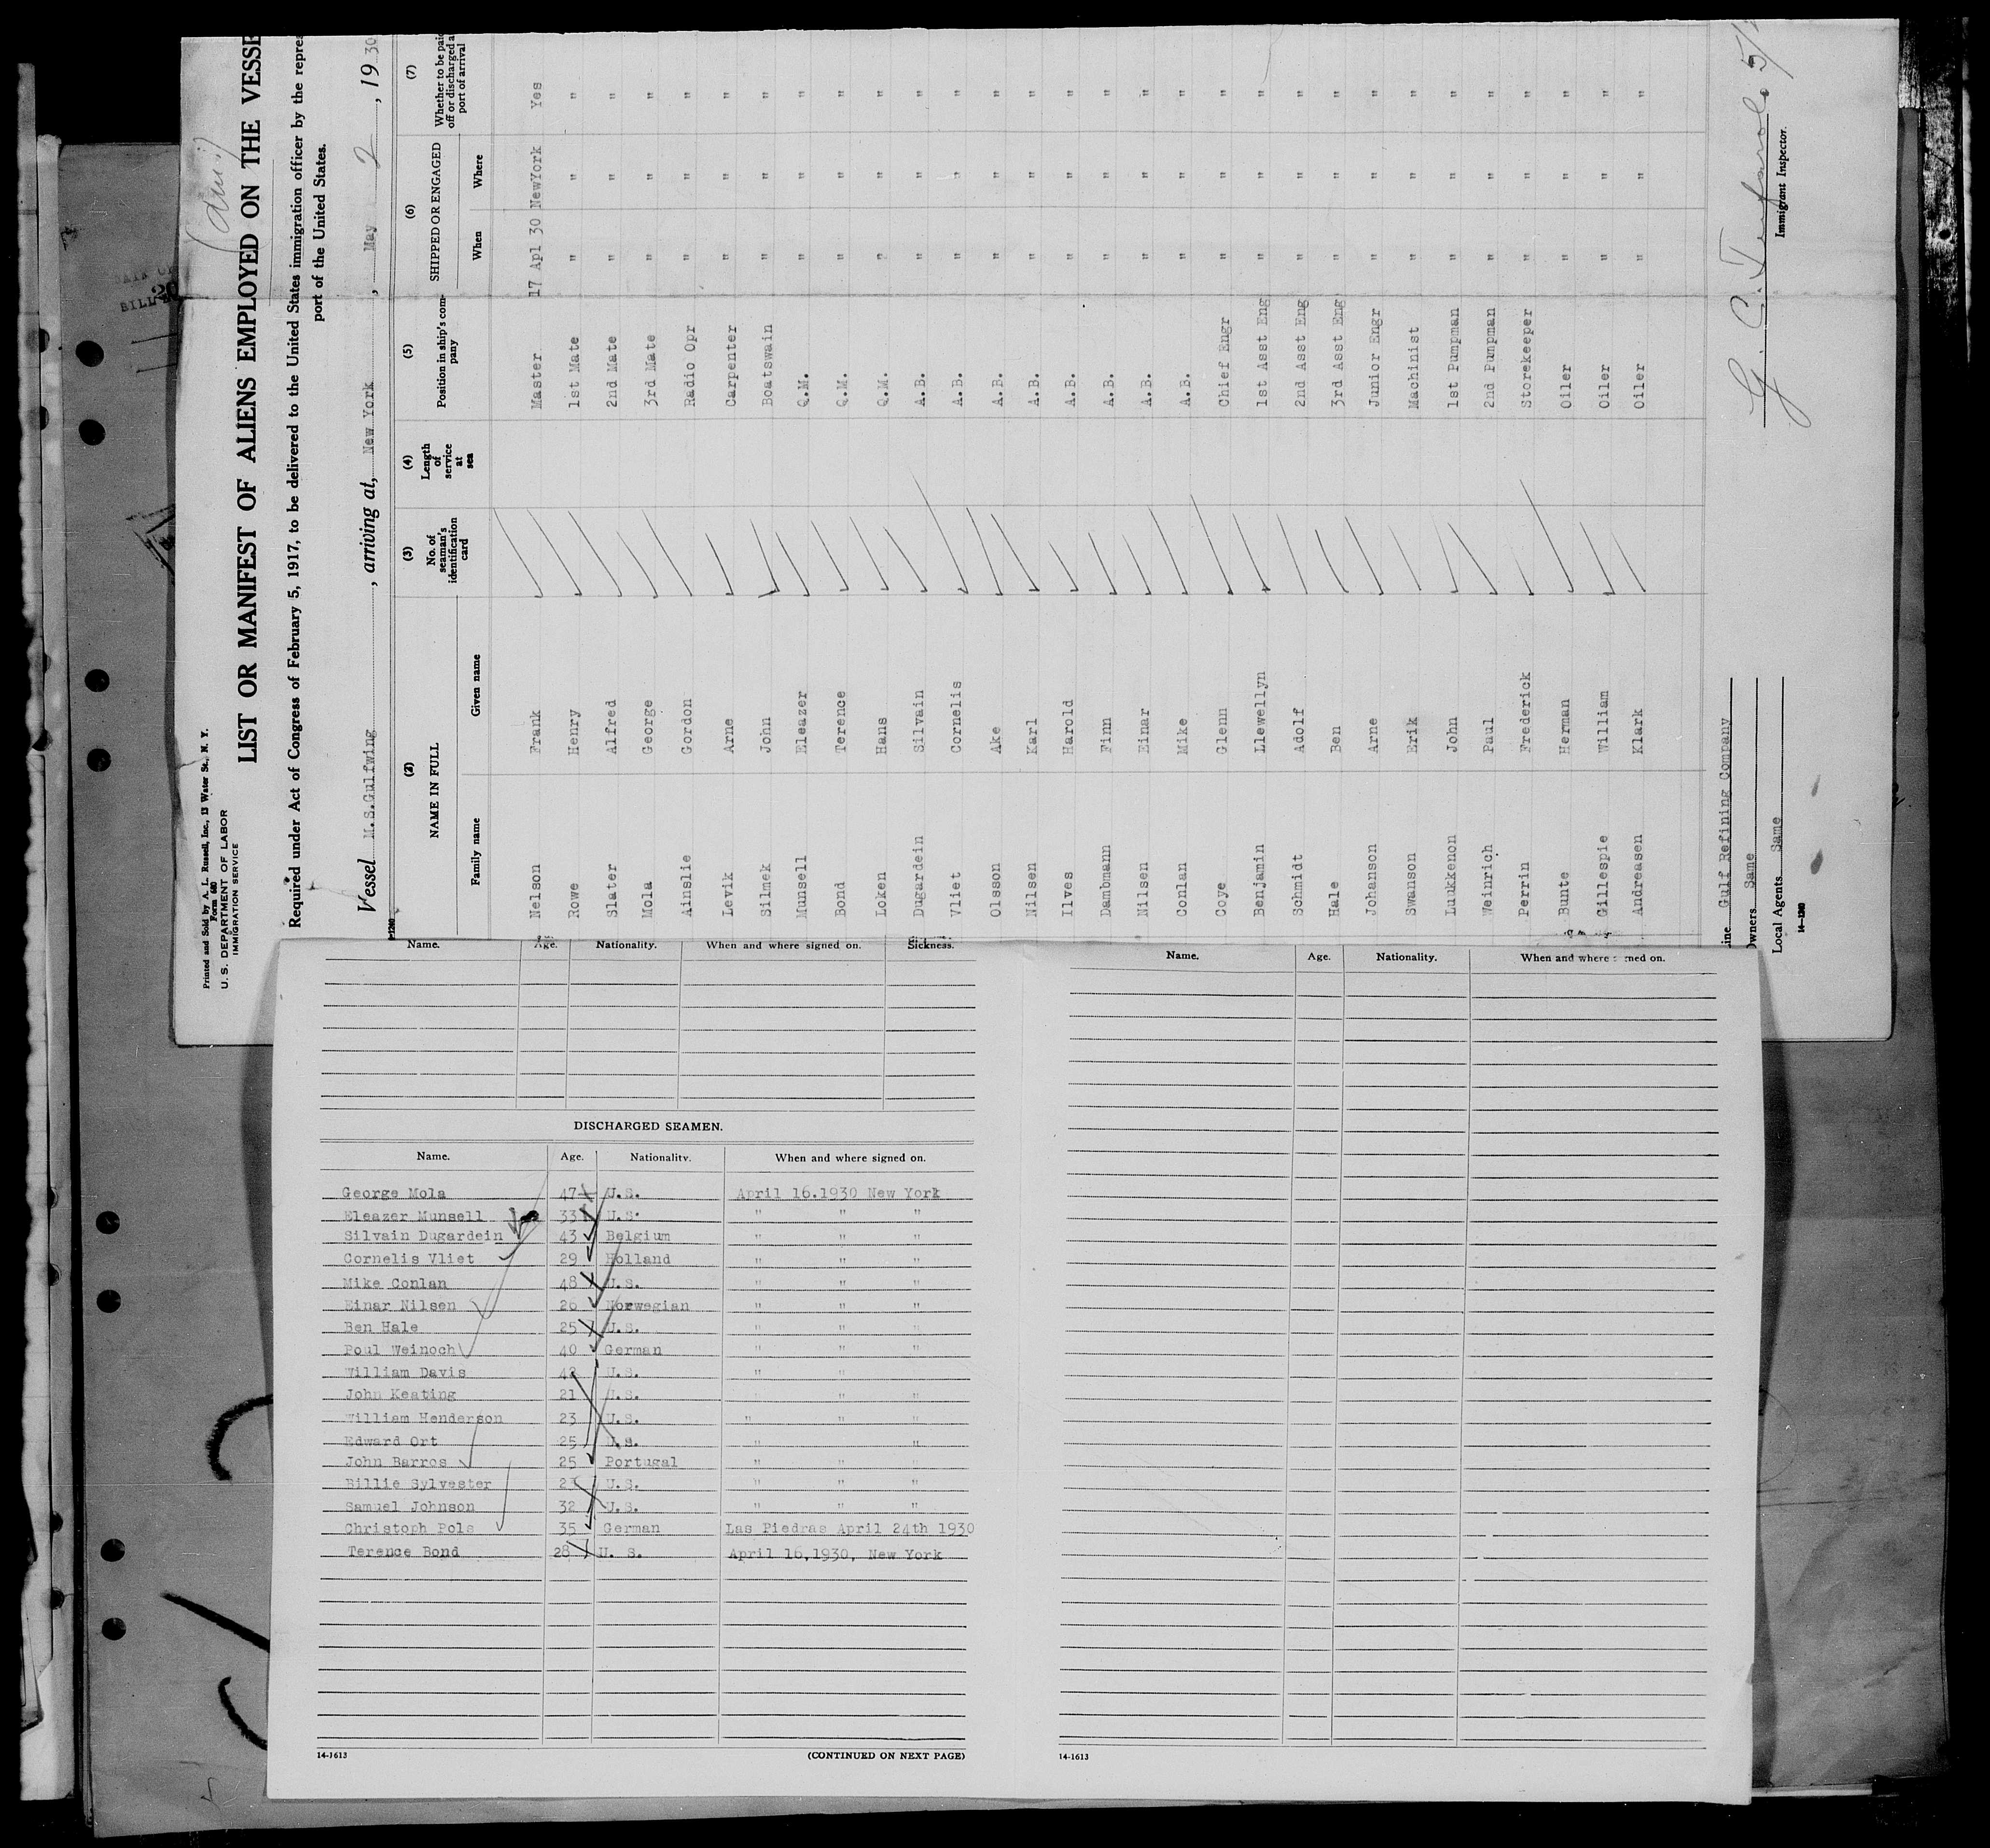 Printed and Sold by A. L. Russell, Inc., 13 Water St., N. Y.
Form 680
U. S. DEPARTMENT OF LABOR
IMMIGRATION SERVICE
LIST OR MANIFEST OF ALIENS EMPLOYED ON THE VESSE
Required under Act of Congress of February 5, 1917, to be delivered to the United States immigration officer by the repres
port of the United States.
Vessel M.S.Gulfwing, arriving at, New York, May 2, 1930
(2) (3) (4) (5) (6) (7)
NAME IN FULL No. of seaman's identification card Length of service at sea Position in ship's company SHIPPED OR ENGAGED Whether to be paid off or discharged at port of arrival
Family name Given name When Where
Nelson Frank Master 17 Apl 30 NewYork Yes
Rowe Henry 1st Mate " " "
Slater Alfred 2nd Mate " " "
Mola George 3rd Mate " " "
Ainslie Gordon Radio Opr " " "
Levik Arne Carpenter " " "
Silmek John Boatswain " " "
Munsell Eleazer Q.M. " " "
Bond Terence Q.M. " " "
Loken Hans Q.M. " " "
Dugardein Silvain A.B. " " "
Vliet Cornelis A.B. " " "
Olsson Ake A.B. " " "
Nilsen Karl A.B. " " "
Ilves Harold A.B. " " "
Dambmann Finn A.B. " " "
Nilsen Einar A.B. " " "
Conlan Mike A.B. " " "
Coye Glenn Chief Engr " " "
Benjamin Llewellyn 1st Asst Eng " " "
Schmidt Adolf 2nd Asst Eng " " "
Hale Ben 3rd Asst Eng " " "
Johanson Arne Junior Engr " " "
Swanson Erik Machinist " " "
Luukkenon John 1st Pumpman " " "
Weinrich Paul 2nd Pumpman " " "
Perrin Frederick Storekeeper " " "
Bunte Herman Oiler " " "
Gillespie William Oiler " " "
Andreasen Klark Oiler " " "
ine Gulf Refining Company
wners Same
Local Agents Same
14-1240
Immigrant Inspector.
Name. Age. Nationality. When and where signed on. Sickness.
DISCHARGED SEAMEN.
Name. Age. Nationality. When and where signed on.
George Mola 47 U.S. April 16.1930 New York
Eleazer Munsell 33 U.S. " " "
Silvain Dugardein 43 Belgium " " "
Cornelis Vliet 29 Holland " " "
Mike Conlan 48 U.S. " " "
Einar Nilsen 26 Norwegian " " "
Ben Hale 25 U.S. " " "
Poul Weinoch 40 German " " "
William Davis 42 U.S. " "
John Keating 21 U.S. " "
William Henderson 23 U.S. " " "
Edward Ort 25 U.S. " "
John Barros 25 Portugal " "
Billie Sylvester U.S. " " "
Samuel Johnson 32 U.S. " " "
Christoph Pols 35 German Las Piedras April 24th 1930
Terence Bond 28 U. S. April 16,1930, New York
14-1613 (CONTINUED ON NEXT PAGE)
Name. Age. Nationality. When and where signed on.
14-1613